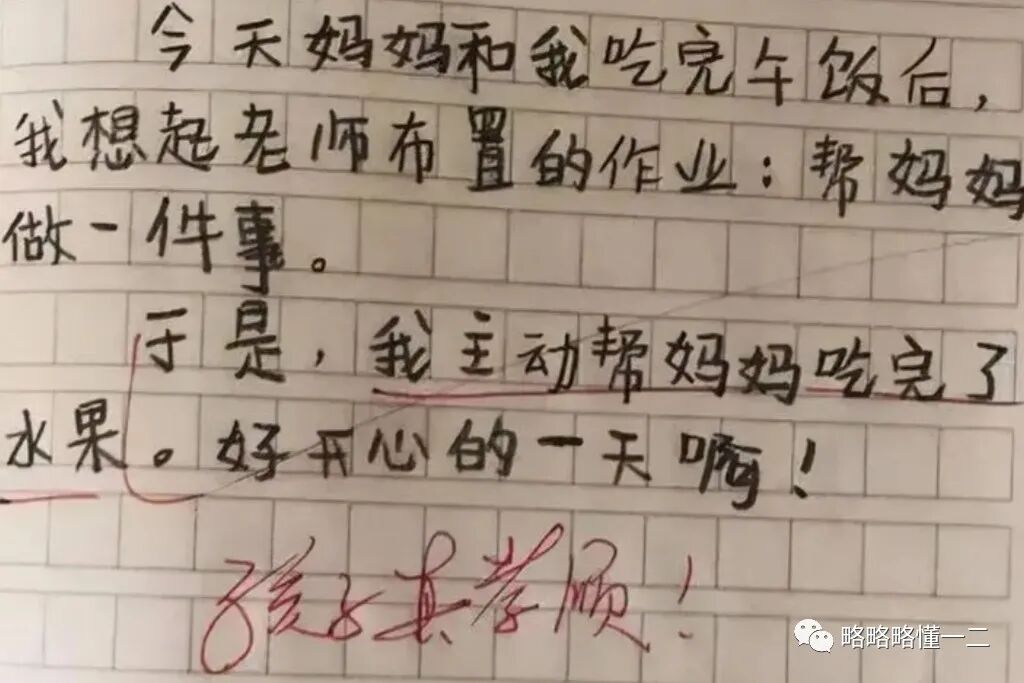 今天妈妈和我吃完午饭后，
我想起老师布置的作业：帮妈妈
做一件事。
于是，我主动帮妈妈吃完了
水果。好开心的一天啊！
孩子真孝顺！
略略略懂一二